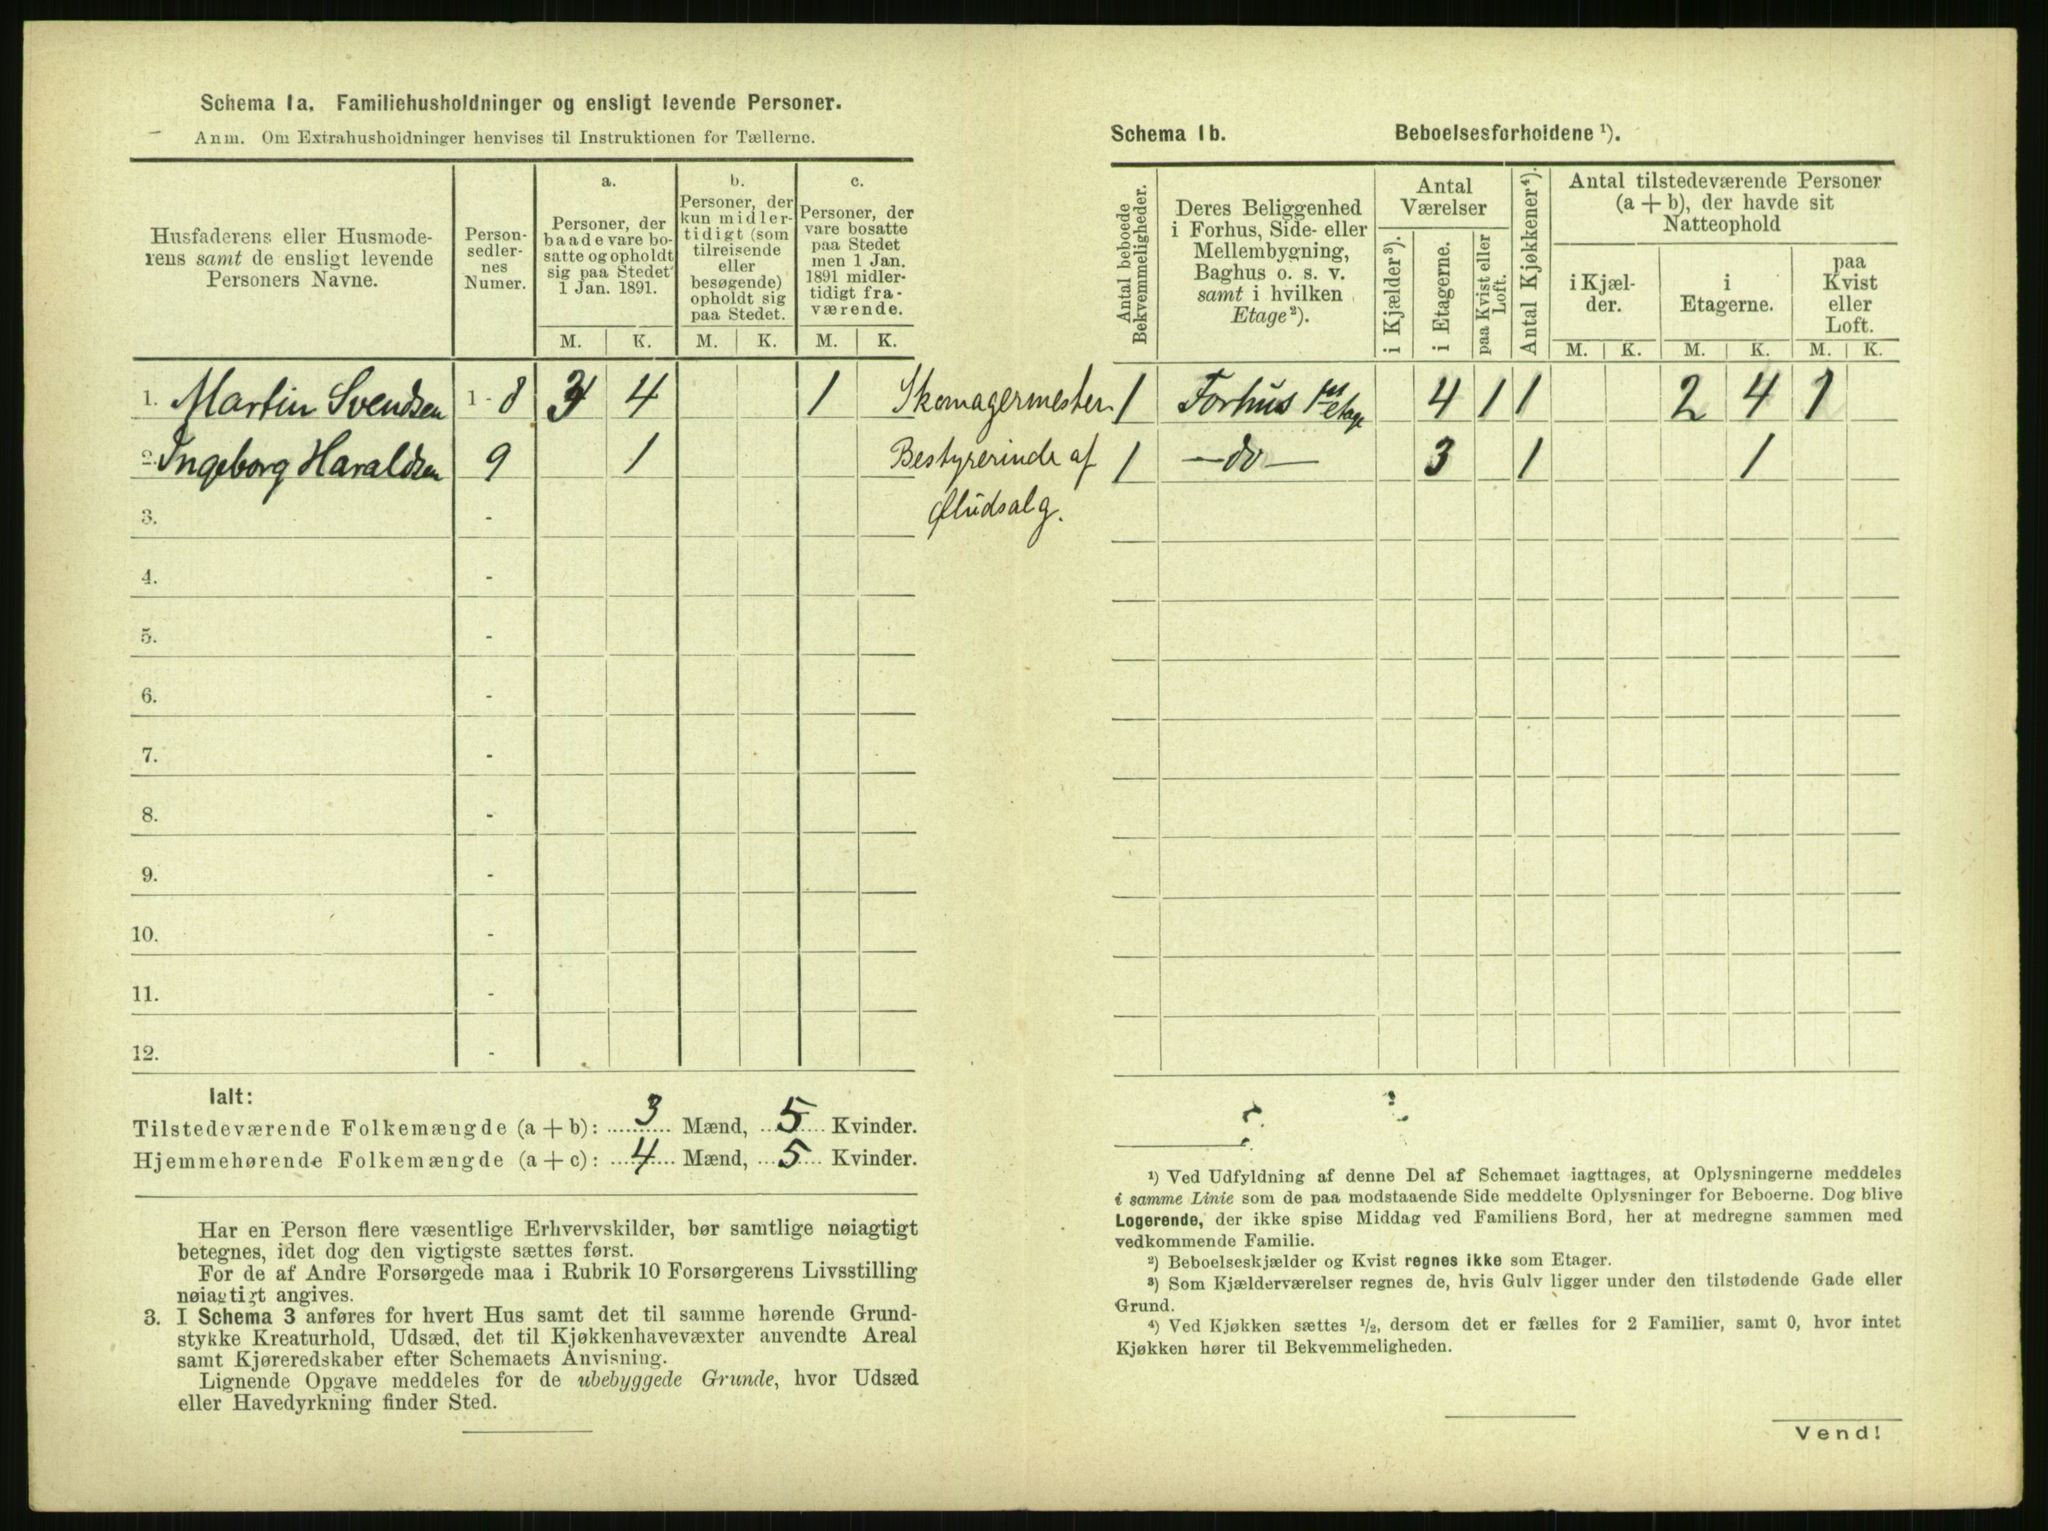 Schema 1a. Familiehusholdninger og ensligt levende Personer.
Anm. Om Extrahusholdninger henvises til Instruktionen for Tællerne.
Husfaderens eller Husmode-
rens samt de ensligt levende
Personers Navne.
Person-
sedler-
nes
Numer.
a.
Personer, der
baade vare bo-
satte og opholdt
sig paa Stedet
1 Jan. 1891.
b.
Personer, der
kun midler-
tidigt (som
tilreisende
eller
besøgende)
opholdt sig
paa Stedet.
c.
Personer, der
vare bosatte
paa Stedet
men 1 Jan.
1891 midler-
tidigt fra-
værende.
M. K. M. K. M. K.
1. Martin Svendsen 1 - 8 3 4 1 Skomagermester.
2. Ingeborg Haraldsen 9 1 Bestyrerinde af
Øludsalg.
3. -
4. -
5. -
6. -
7. -
8. -
9. -
10. -
11. -
12. -
Ialt:
Tilstedeværende Folkemængde (a + b): 3 Mænd, 5 Kvinder.
Hjemmehørende Folkemængde (a + c): 4 Mænd, 5 Kvinder.
Har en Person flere væsentlige Erhvervskilder, bør samtlige nøiagtigt
betegnes, idet dog den vigtigste sættes først.
For de af Andre Forsørgede maa i Rubrik 10 Forsørgerens Livsstilling
nøiagtigt angives.
3. I Schema 3 anføres for hvert Hus samt det til samme hørende Grund-
stykke Kreaturhold, Udsæd, det til Kjøkkenhavevæxter anvendte Areal
samt Kjøreredskaber efter Schemaets Anvisning.
Lignende Opgave meddeles for de ubebyggede Grunde, hvor Udsæd
eller Havedyrkning finder Sted.
Schema 1b. Beboelsesforholdene ¹).
Antal beboede
Bekvemmeligheder.
Deres Beliggenhed
i Forhus, Side- eller
Mellembygning,
Baghus o. s. v.
samt i hvilken
Etage²).
Antal
Værelser
i Kjælder³).
i Etagerne.
paa Kvist eller
Loft.
Antal Kjøkkener⁴).
Antal tilstedeværende Personer
(a + b), der havde sit
Natteophold
i Kjæl-
der.
i
Etagerne.
paa
Kvist
eller
Loft.
M. K. M. K. M. K.
1 Forhus 1ste etage 4 1 1 2 4 1
1 — do — 3 1 1
¹) Ved Udfyldning af denne Del af Schemaet iagttages, at Oplysningerne meddeles
i samme Linie som de paa modstaaende Side meddelte Oplysninger for Beboerne. Dog blive
Logerende, der ikke spise Middag ved Familiens Bord, her at medregne sammen med
vedkommende Familie.
²) Beboelseskjælder og Kvist regnes ikke som Etager.
³) Som Kjælderværelser regnes de, hvis Gulv ligger under den tilstødende Gade eller
Grund.
⁴) Ved Kjøkken sættes ½, dersom det er fælles for 2 Familier, samt 0, hvor intet
Kjøkken hører til Bekvemmeligheden.
Vend!